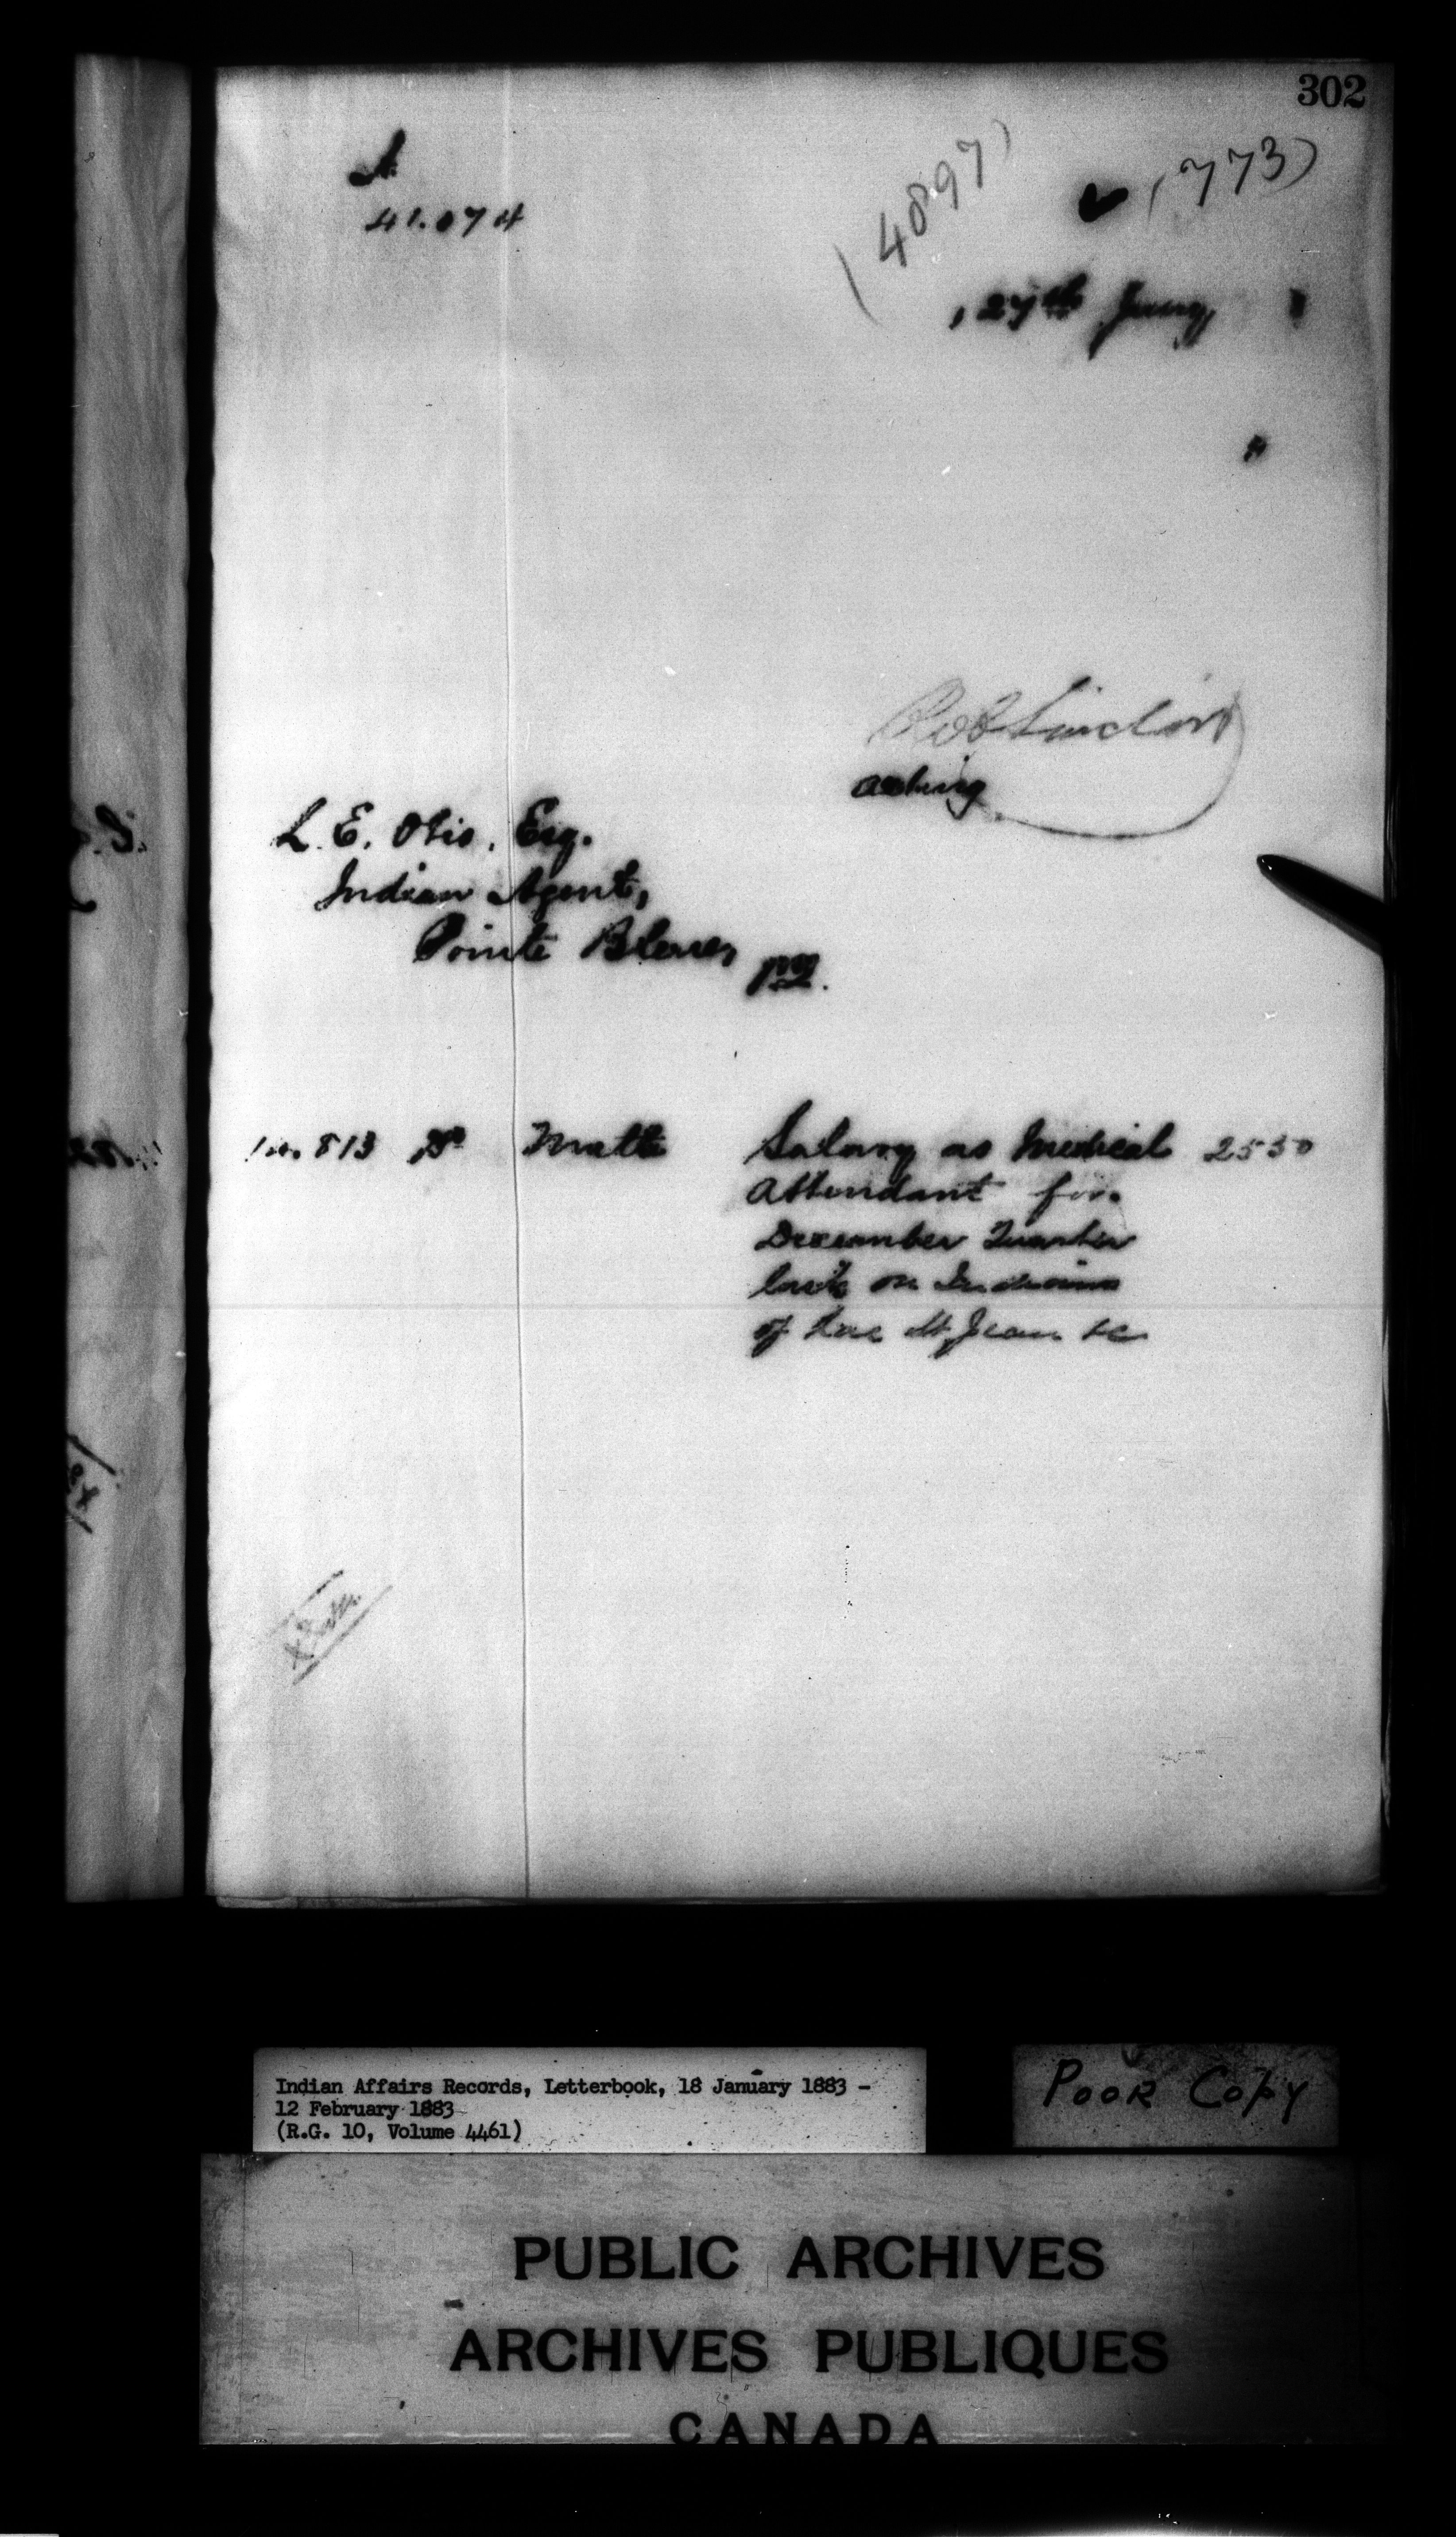 302
A
41.074
(4897)
(773)
27th Jany
Rob Sinclair
acting
L. E. Otis, Esq.
Indian Agent,
Pointe Bleue,
P.Q.
No. 813 Dr Matte Salary as Medical 2550
Attendant for
December Quarter
last on Indians
of Lac St Jean &c
Indian Affairs Records, Letterbook, 18 January 1883 -
12 February 1883
(R.G. 10, Volume 4461)
POOR COPY
PUBLIC ARCHIVES
ARCHIVES PUBLIQUES
CANADA